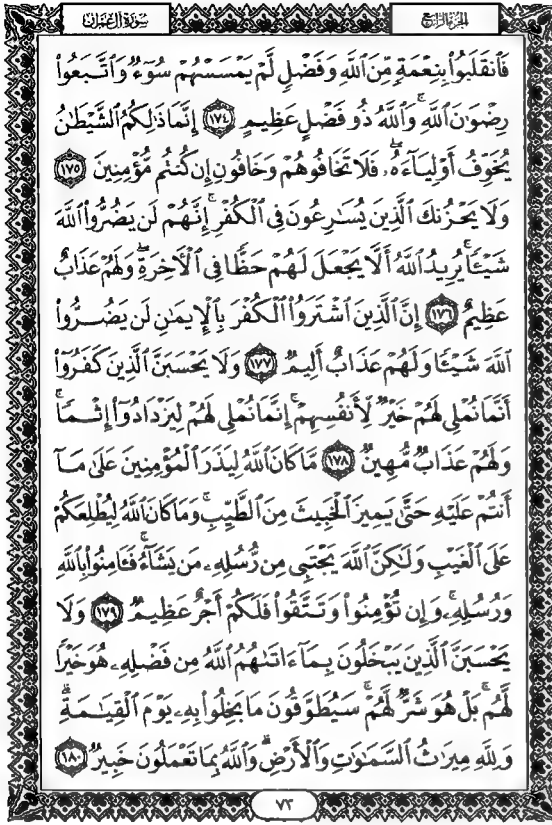 سورة آل عمران
الجزء الرابع
فَٱنقَلَبُوا۟ بِنِعْمَةٍ مِّنَ ٱللَّهِ وَفَضْلٍ لَّمْ يَمْسَسْهُمْ سُوٓءٌ وَٱتَّبَعُوا۟
رِضْوَٰنَ ٱللَّهِ ۗ وَٱللَّهُ ذُو فَضْلٍ عَظِيمٍ ١٧٤ إِنَّمَا ذَٰلِكُمُ ٱلشَّيْطَٰنُ
يُخَوِّفُ أَوْلِيَآءَهُۥ ۖ فَلَا تَخَافُوهُمْ وَخَافُونِ إِن كُنتُم مُّؤْمِنِينَ ١٧٥
وَلَا يَحْزُنكَ ٱلَّذِينَ يُسَٰرِعُونَ فِى ٱلْكُفْرِ ۚ إِنَّهُمْ لَن يَضُرُّوا۟ ٱللَّهَ
شَيْـًٔا ۗ يُرِيدُ ٱللَّهُ أَلَّا يَجْعَلَ لَهُمْ حَظًّا فِى ٱلْـَٔاخِرَةِ ۖ وَلَهُمْ عَذَابٌ
عَظِيمٌ ١٧٦ إِنَّ ٱلَّذِينَ ٱشْتَرَوُا۟ ٱلْكُفْرَ بِٱلْإِيمَٰنِ لَن يَضُرُّوا۟
ٱللَّهَ شَيْـًٔا وَلَهُمْ عَذَابٌ أَلِيمٌ ١٧٧ وَلَا يَحْسَبَنَّ ٱلَّذِينَ كَفَرُوٓا۟
أَنَّمَا نُمْلِى لَهُمْ خَيْرٌ لِّأَنفُسِهِمْ ۚ إِنَّمَا نُمْلِى لَهُمْ لِيَزْدَادُوٓا۟ إِثْمًا ۚ
وَلَهُمْ عَذَابٌ مُّهِينٌ ١٧٨ مَّا كَانَ ٱللَّهُ لِيَذَرَ ٱلْمُؤْمِنِينَ عَلَىٰ مَآ
أَنتُمْ عَلَيْهِ حَتَّىٰ يَمِيزَ ٱلْخَبِيثَ مِنَ ٱلطَّيِّبِ ۗ وَمَا كَانَ ٱللَّهُ لِيُطْلِعَكُمْ
عَلَى ٱلْغَيْبِ وَلَٰكِنَّ ٱللَّهَ يَجْتَبِى مِن رُّسُلِهِۦ مَن يَشَآءُ ۖ فَـَٔامِنُوا۟ بِٱللَّهِ
وَرُسُلِهِۦ ۚ وَإِن تُؤْمِنُوا۟ وَتَتَّقُوا۟ فَلَكُمْ أَجْرٌ عَظِيمٌ ١٧٩ وَلَا
يَحْسَبَنَّ ٱلَّذِينَ يَبْخَلُونَ بِمَآ ءَاتَىٰهُمُ ٱللَّهُ مِن فَضْلِهِۦ هُوَ خَيْرًا
لَّهُم ۖ بَلْ هُوَ شَرٌّ لَّهُمْ ۖ سَيُطَوَّقُونَ مَا بَخِلُوا۟ بِهِۦ يَوْمَ ٱلْقِيَٰمَةِ ۗ
وَلِلَّهِ مِيرَٰثُ ٱلسَّمَٰوَٰتِ وَٱلْأَرْضِ ۗ وَٱللَّهُ بِمَا تَعْمَلُونَ خَبِيرٌ ١٨٠
٧٣